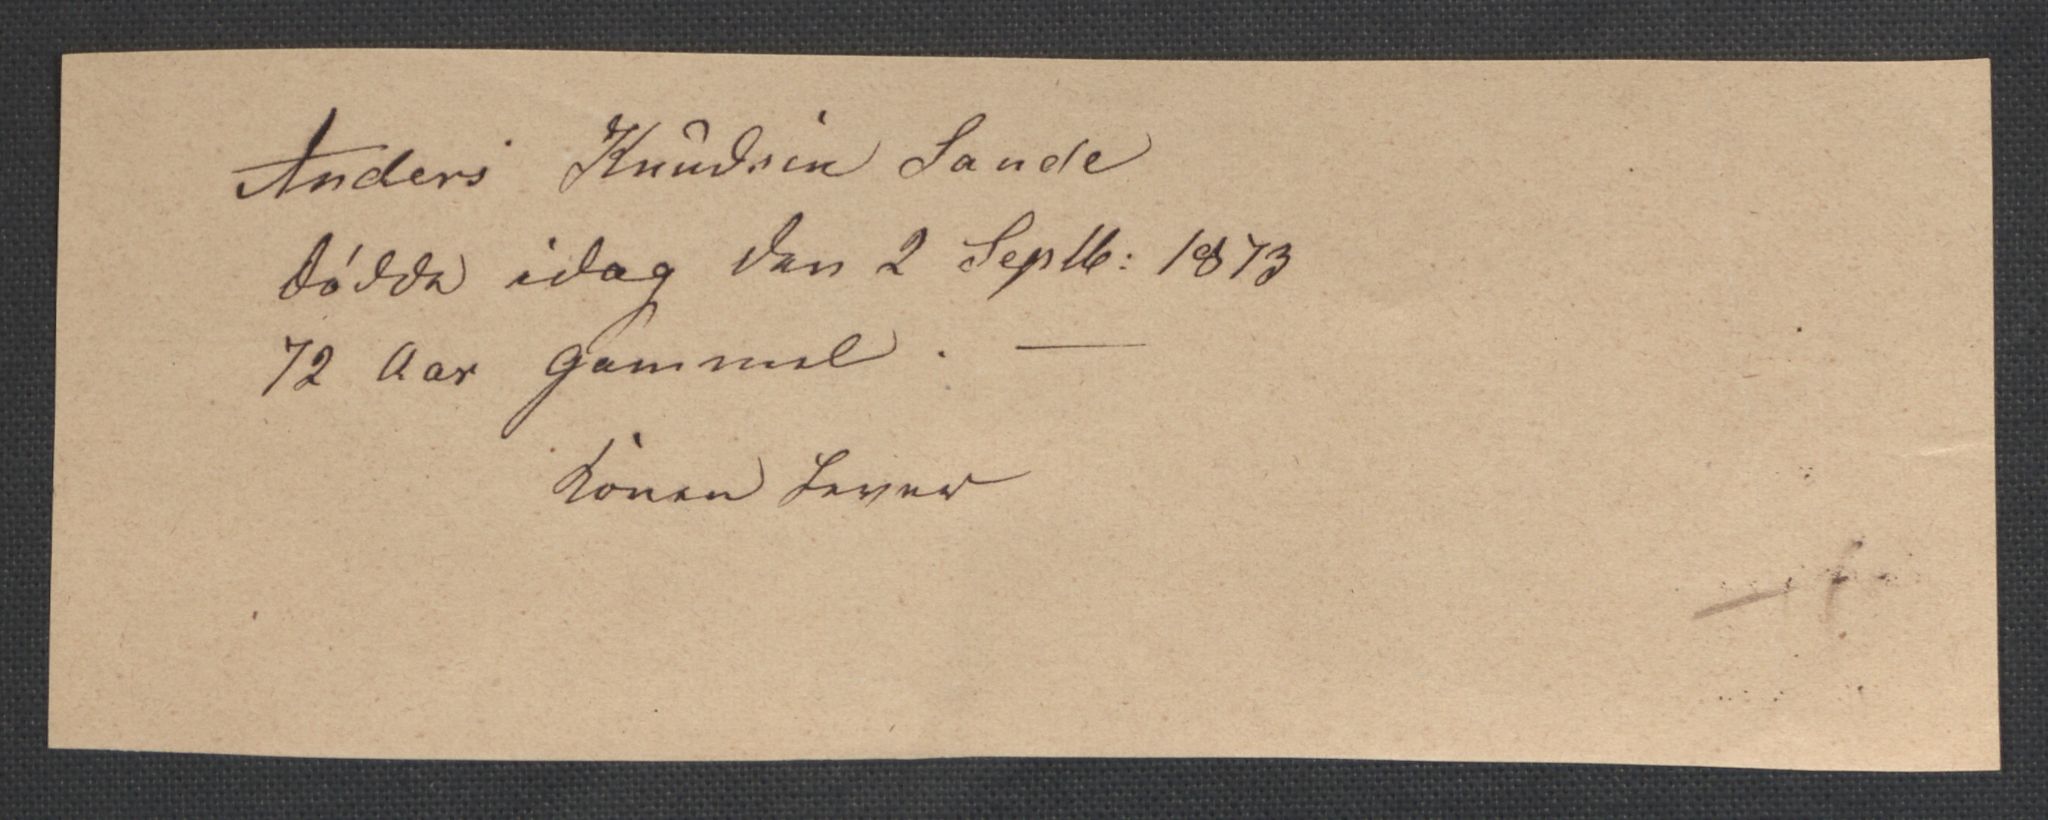 Anders Knudsen Sande
dödde idag den 2 Septb: 1873
72 Aar gammel. —
Konen Lever